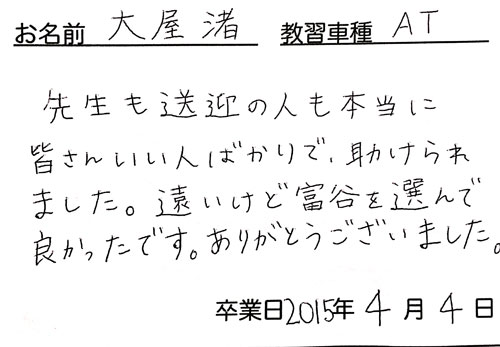 お名前 大屋 渚 教習車種 AT
先生も送迎の人も本当に
皆さんいい人ばかりで、助けられ
ました。遠いけど富谷を選んで
良かったです。ありがとうございました。
卒業日2015年 4 月 4 日